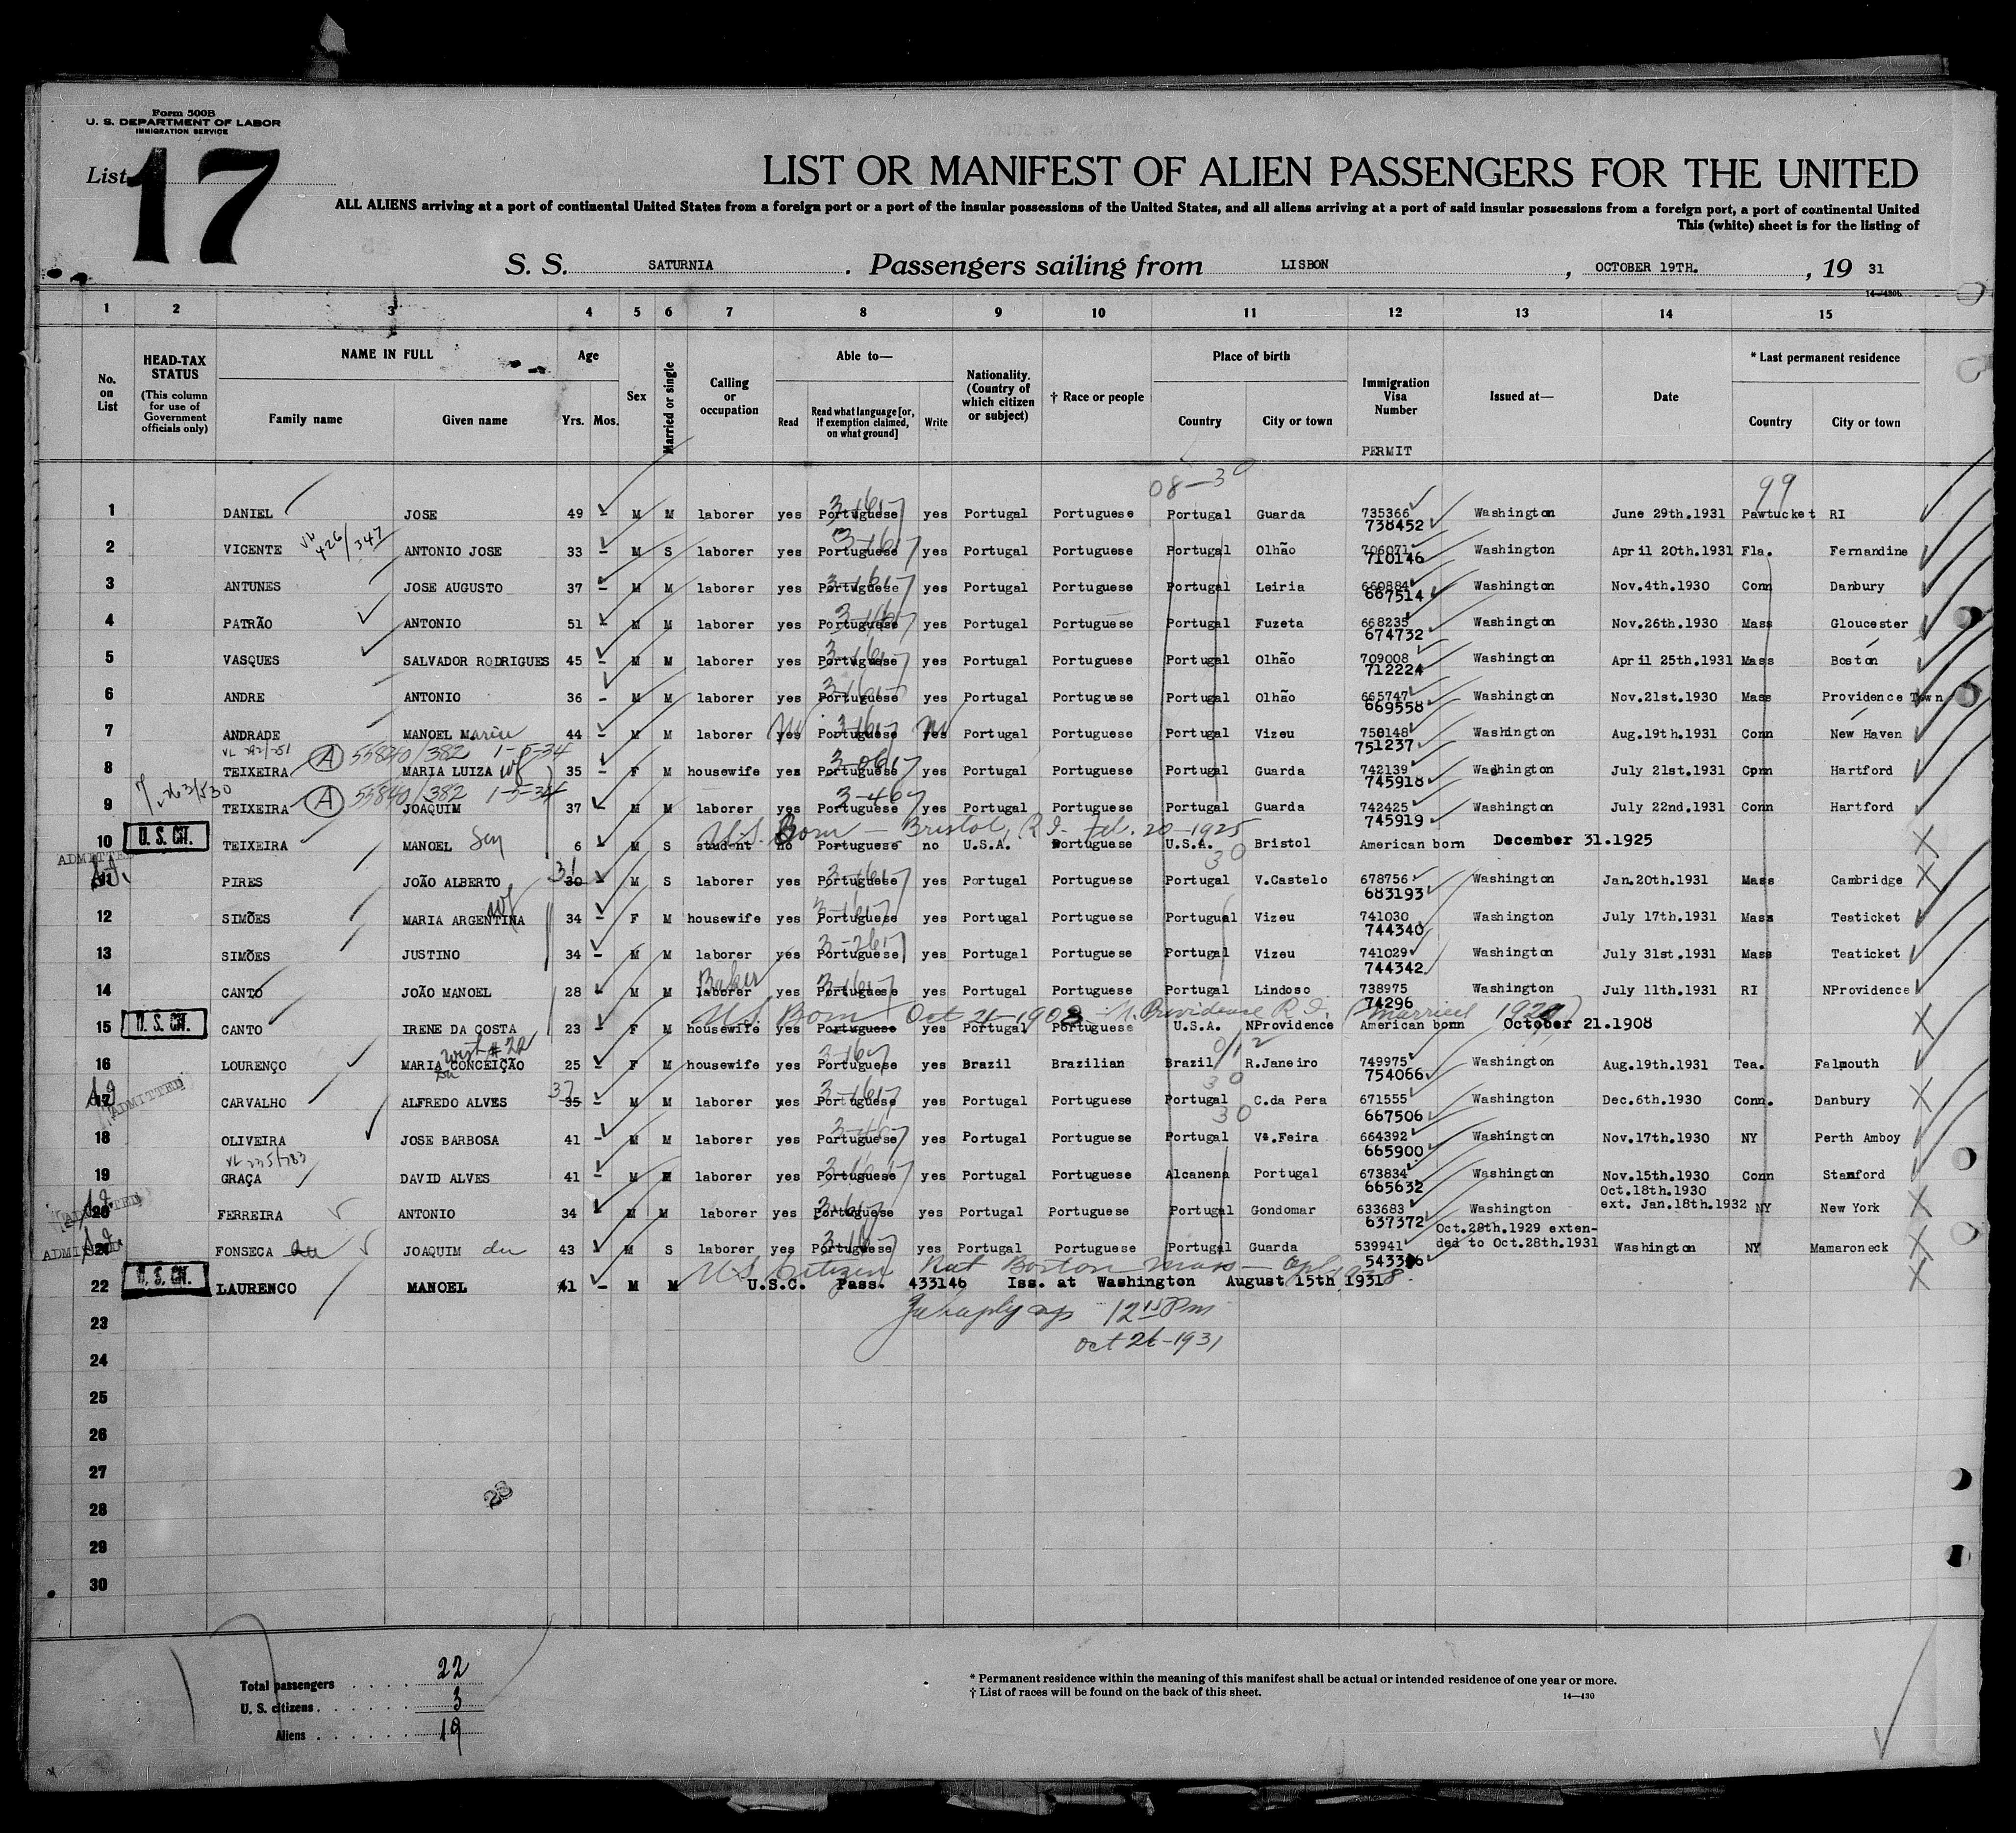 Form 500B
U. S. DEPARTMENT OF LABOR
IMMIGRATION SERVICE
List 17
LIST OR MANIFEST OF ALIEN PASSENGERS FOR THE UNITED
ALL ALIENS arriving at a port of continental United States from a foreign port or a port of the insular possessions of the United States, and all aliens arriving at a port of said insular possessions from a foreign port, a port of continental United
This (white) sheet is for the listing of
S. S. SATURNIA. Passengers sailing from LISBON, OCTOBER 19TH., 19 31
14—430b
1 2 3 4 5 6 7 8 9 10 11 12 13 14 15
No. on List
HEAD-TAX STATUS (This column for use of Government officials only)
NAME IN FULL
Family name Given name
Age
Yrs. Mos.
Sex
Married or single
Calling or occupation
Able to—
Read
Read what language [or, if exemption claimed, on what ground]
Write
Nationality. (Country of which citizen or subject)
† Race or people
Place of birth
Country City or town
Immigration Visa Number
PERMIT
Issued at—
Date
* Last permanent residence
Country City or town
08-30 99
1 DANIEL JOSE 49 - M M laborer yes Portuguese yes Portugal Portuguese Portugal Guarda 735366 Washington June 29th.1931 Pawtucket RI
738452
2 VICENTE 426/347 ANTONIO JOSE 33 - M S laborer yes Portuguese yes Portugal Portuguese Portugal Olhão 706071 Washington April 20th.1931 Fla. Fernandine
710146
3 ANTUNES JOSE AUGUSTO 37 - M M laborer yes Portuguese yes Portugal Portuguese Portugal Leiria 660884 Washington Nov.4th.1930 Conn Danbury
667514
4 PATRÃO ANTONIO 51 - M M laborer yes Portuguese yes Portugal Portuguese Portugal Fuzeta 668235 Washington Nov.26th.1930 Mass Gloucester
674732
5 VASQUES SALVADOR RODRIGUES 45 - M M laborer yes Portuguese yes Portugal Portuguese Portugal Olhão 709008 Washington April 25th.1931 Mass Boston
712224
6 ANDRE ANTONIO 36 - M M laborer yes Portuguese yes Portugal Portuguese Portugal Olhão 665747 Washington Nov.21st.1930 Mass Providence Town
669558
7 ANDRADE MANOEL Maria 44 - M M laborer yes Portuguese yes Portugal Portuguese Portugal Vizeu 750148 Washington Aug.19th.1931 Conn New Haven
751237
A 55840/382 1-5-34
8 TEIXEIRA MARIA LUIZA wf 35 - F M housewife yes Portuguese yes Portugal Portuguese Portugal Guarda 742139 Washington July 21st.1931 Cpnn Hartford
745918
A 55840/382 1-5-34
9 TEIXEIRA JOAQUIM 37 - M M laborer yes Portuguese yes Portugal Portuguese Portugal Guarda 742425 Washington July 22nd.1931 Conn Hartford
745919
U.S. Born — Bristol, R.I. Feb. 20-1925
10 U. S. CH. TEIXEIRA MANOEL Son 6 M S student no Portuguese no U.S.A. Portuguese U.S.A. Bristol American born December 31.1925
ADMITTED
11 PIRES JOÃO ALBERTO 31 30 - M S laborer yes Portuguese yes Portugal Portuguese Portugal V.Castelo 678756 Washington Jan.20th.1931 Mass Cambridge
683193
12 SIMÕES MARIA ARGENTINA wf 34 - F M housewife yes Portuguese yes Portugal Portuguese Portugual Vizeu 741030 Washington July 17th.1931 Mass Teaticket
744340
13 SIMÕES JUSTINO 34 - M M laborer yes Portuguese yes Portugal Portuguese Portugal Vizeu 741029 Washington July 31st.1931 Mass Teaticket
744342
Baker
14 CANTO JOÃO MANOEL 28 - M M laborer yes Portuguese yes Portugal Portuguese Portugal Lindoso 738975 Washington July 11th.1931 RI NProvidence
74296
U.S. Born Oct 21-1908 - N. Providence R.I. (Married 1929)
15 U. S. CH. CANTO IRENE DA COSTA 23 - F M housewife yes Portuguese yes Portugal Portuguese U.S.A. NProvidence American born October 21.1908
16 LOURENÇO MARIA CONCEIÇÃO 25 - F M housewife yes Portuguese yes Brazil Brazilian Brazil R.Janeiro 749975 Washington Aug.19th.1931 Tea. Falmouth
754066
ADMITTED
17 CARVALHO ALFREDO ALVES 37 35 - M M laborer yes Portuguese yes Portugal Portuguese Portugal C.da Pera 671555 Washington Dec.6th.1930 Conn. Danbury
667506
18 OLIVEIRA JOSE BARBOSA 41 - M M laborer yes Portuguese yes Portugal Portuguese Portugal Vª.Feira 664392 Washington Nov.17th.1930 NY Perth Amboy
665900
19 GRAÇA DAVID ALVES 41 - M M laborer yes Portuguese yes Portugal Portuguese Alcanena Portugal 673834 Washington Nov.15th.1930 Conn Stamford
665632
Oct.18th.1930
20 ADMITTED FERREIRA ANTONIO 34 M M laborer yes Portuguese yes Portugal Portuguese Portugal Gondomar 633683 Washington ext. Jan.18th.1932 NY New York
637372
Oct.28th.1929 exten-
ADMITTED FONSECA JOAQUIM da 43 M S laborer yes Portuguese yes Portugal Portuguese Portugal Guarda 539941 ded to Oct.28th.1931 Washington NY Mamaroneck
U.S. Citizen Nat Boston Mass
22 U. S. CH. LAURENCO MANOEL 41 - M M U.S.C. Pass. 433146 Iss. at Washington August 15th 1931
12 15 Pm
Oct 26-1931
23
24
25
26
27
28
29
30
23
Total passengers 22
U. S. citizens 3
Aliens 19
* Permanent residence within the meaning of this manifest shall be actual or intended residence of one year or more.
† List of races will be found on the back of this sheet.
14—430